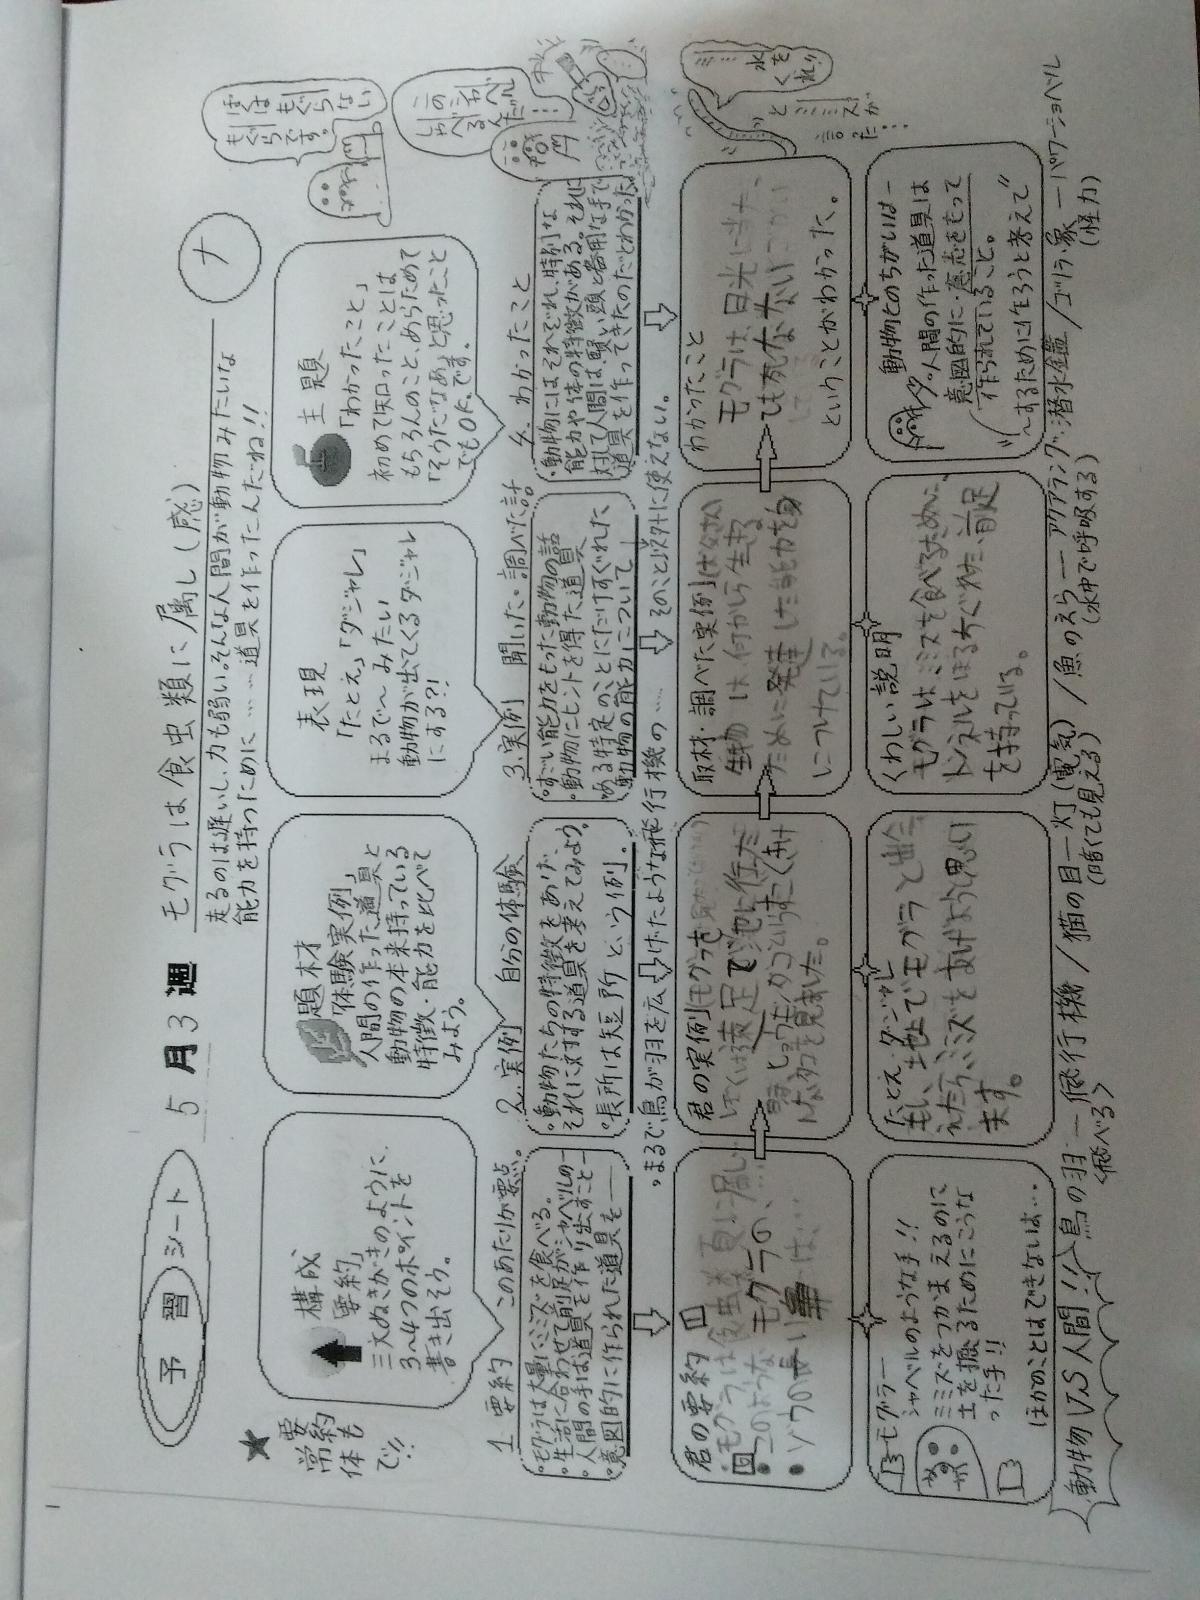 予習シート
5月3週
モグラは食虫類に属し（感）
ナ
走るのは遅いし、力も弱い。そんな人間が動物みたいな
能力を持つために……道具を作ったんだね!!
ぼくは
もぐらない
もぐらです。
★要約
常体
でも!!
構成
「要約」
三文ぬきがきのように、
3〜4つのポイントを
書き出そう。
題材
「体験実例」
人間の作った道具と
動物の本来持っている
特徴・能力を比べて
みよう。
表現
「たとえ」「ダジャレ」
まるで〜みたい
動物が出てくるダジャレ
にする?!
主題
「わかったこと」
初めて知ったことは
もちろんのこと、あらためて
「そうだなあ」と思ったこと
でもOK.です。
1. 要約 このあたりが要点。
・モグラは大量にミミズを食べる。
・生活に合わせて前足がシャベルの―
・人間の手は道具を作り出すこと―
・意図的に作られた道具を――
2. 実例 自分の体験
・動物たちの特徴をあげ、
それに対する道具を考えてみよう。
・長所は短所という例。
3. 実例 聞いた・調べた話
・すごい能力をもった動物の話
・動物にヒントを得た道具
・ある特定のことにだけすぐれた
動物の能力について
4. わかったこと
・動物にはそれぞれ、特別な
能力や体の特徴がある。それに
対して人間は、賢い頭と器用な手で
道具を作ってきたのだとわかった。
まるで、鳥が羽を広げたような飛行機の……
そのこと以外に使えない。
君の要約
モグラは食虫類に属し
このような モグラの、…
ゾウの長い
君の実例
ぼくは遠足で池に行った
ヒョウモンダコ
を見ました。
取材・調べた実例
生物は、何かから
ために発達した能力を
につけている。
わかったこと
モグラは、日光に当たっ
ても死なない
ということがわかった。
モグラー
シャベルのような手!!
ミミズをつかまえるのに
土を掘るためにこうな
った手!!
ほかのことはできないは…
たとえ・ダジャレ
もし、地上でモグラと出会
えたら、ミミズをあげようと思い
ます。
くわしい説明
モグラはミミズを食べるために、
トンネルをほるすぐれた前足
を持っている。
動物とのちがいは―
人間の作った道具は
意図的に・意志をもって
作られていること。
〜するために作ろうと考えて"
とミミズが
言った…
水を
くれ!!
動物V.S人間!! 鳥の羽―飛行機/猫の目―灯(電気)/魚のえら―アクアラング・潜水艦/ゴリラ・象―パワーショベル
〈飛べる〉
(暗くても見える)
(水中で呼吸する)
(怪力)